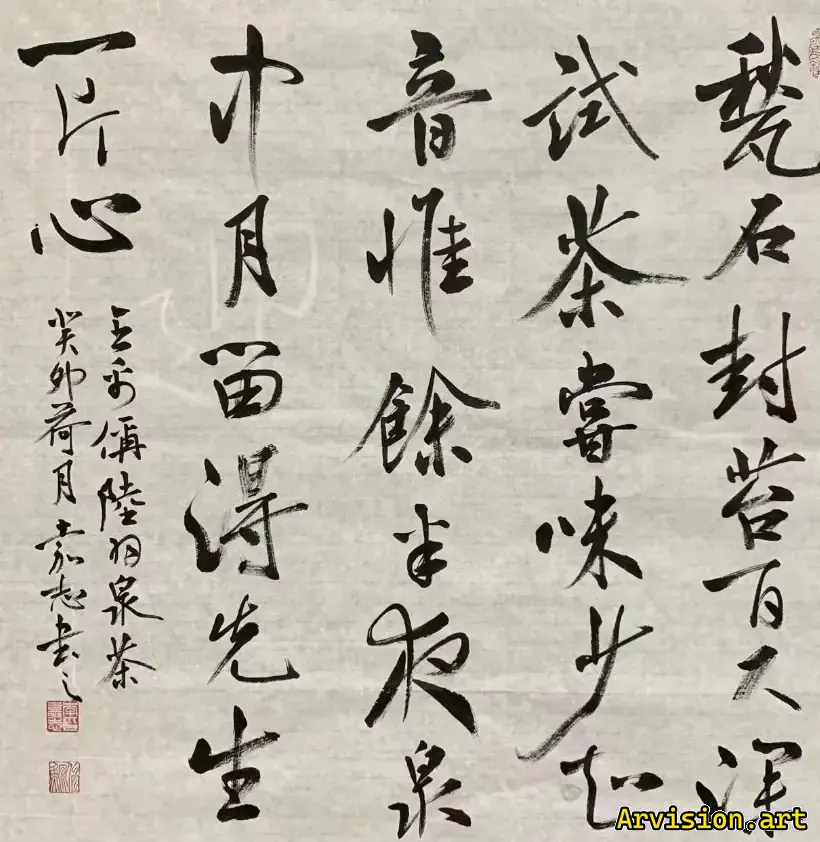 甃石封苔百尺深
試茶嘗味少知
音惟餘半夜泉
中月留得先生
一片心
王禹偁陸羽泉茶
癸卯荷月嘉志書之
Arvision.art